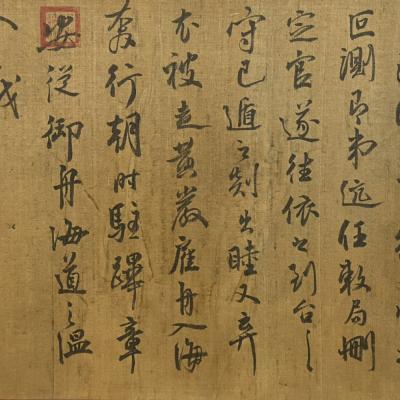 叵測有弟迒任敕局刪
定官遂往依之到台〻
守已遁之剡出睦又棄
衣被走黃巖雇舟入海
奔行朝時駐蹕章
安從御舟海道之溫